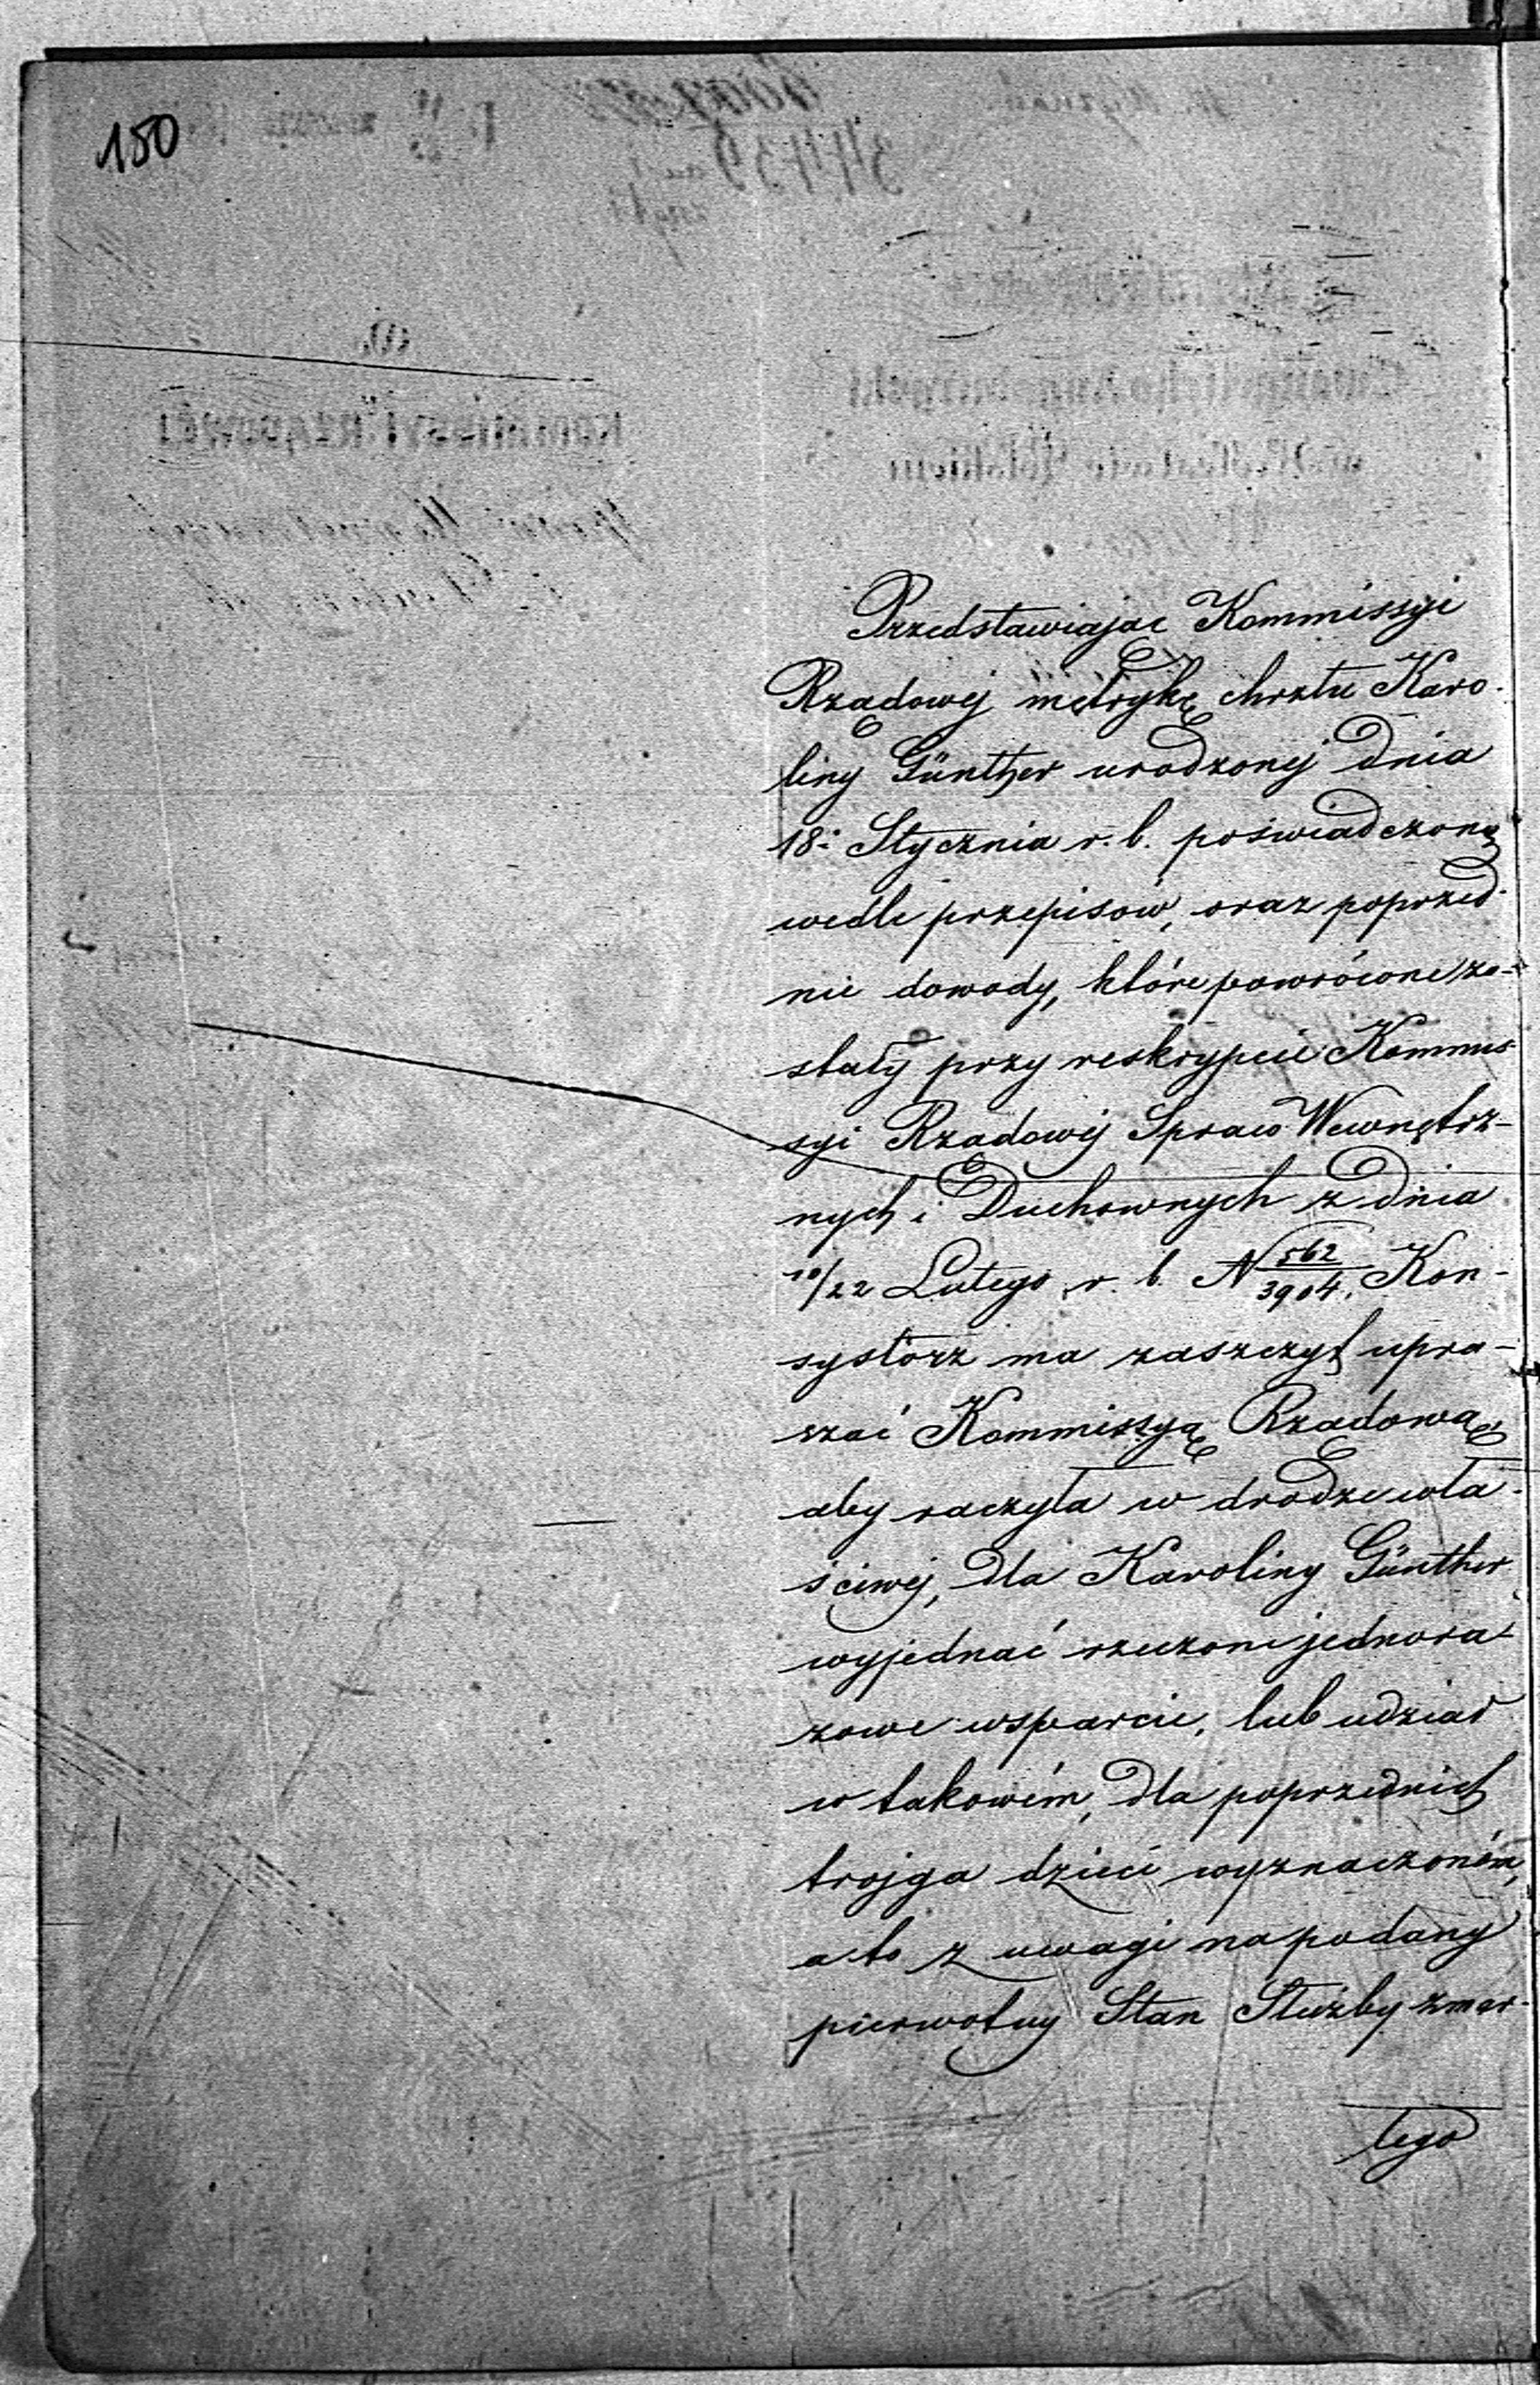 150
Przedstawiając Kommissyi
Rządowéj metrykę chrztu Karo-
liny Günther urodzonéj dnia
18. Stycznia r. b. poświadczoną
wedle przepisów, oraz poprzed-
nie dowody, które powrócone zo-
stały przy reskrypcie Kommis-
syi Rządowéj Spraw Wewnętrz-
nych i Duchownych z dnia
10/22 Lutego r. b. N 562/3904. Kon-
systorz ma zaszczyt upra-
szać Kommissyą Rządową
aby raczyła w drodze wła-
ściwéj, dla Karoliny Günther
wyjednać rzeczone jednora-
zowe wsparcie, lub udział
w takowém, dla poprzednich
trojga dzieci wyznaczoném,
a to z uwagi na podany
pierwotny Stan Służby zmar-
łego